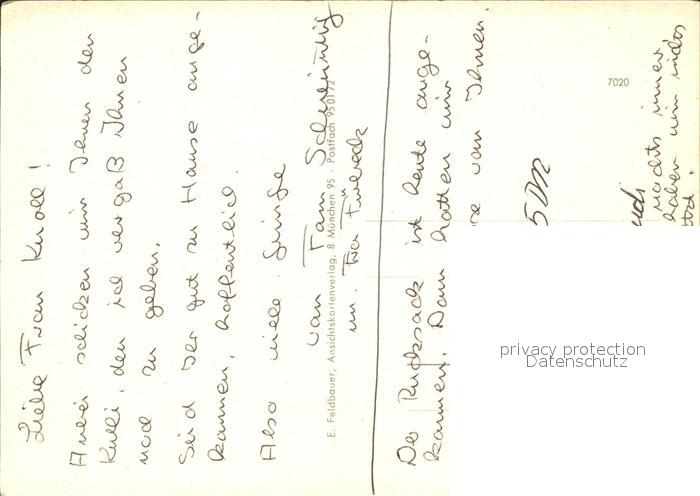 Liebe Frau Knoll!
Anbei schicken wir Ihnen den
Kulli, den ich vergaß Ihnen
noch zu geben.
Seid Ihr gut zu Hause ange-
kommen, hoffentlich.
Also viele Grüße
von Fam.
u.
E. Feldbauer, Ansichtskartenverlag, 8 München 95 · Postfach 950172
Der Rucksack ist heute ange-
kommen. Dann hatten wir
von Ihnen.
5 DM
nachts immer
haben
7020
privacy protection
Datenschutz